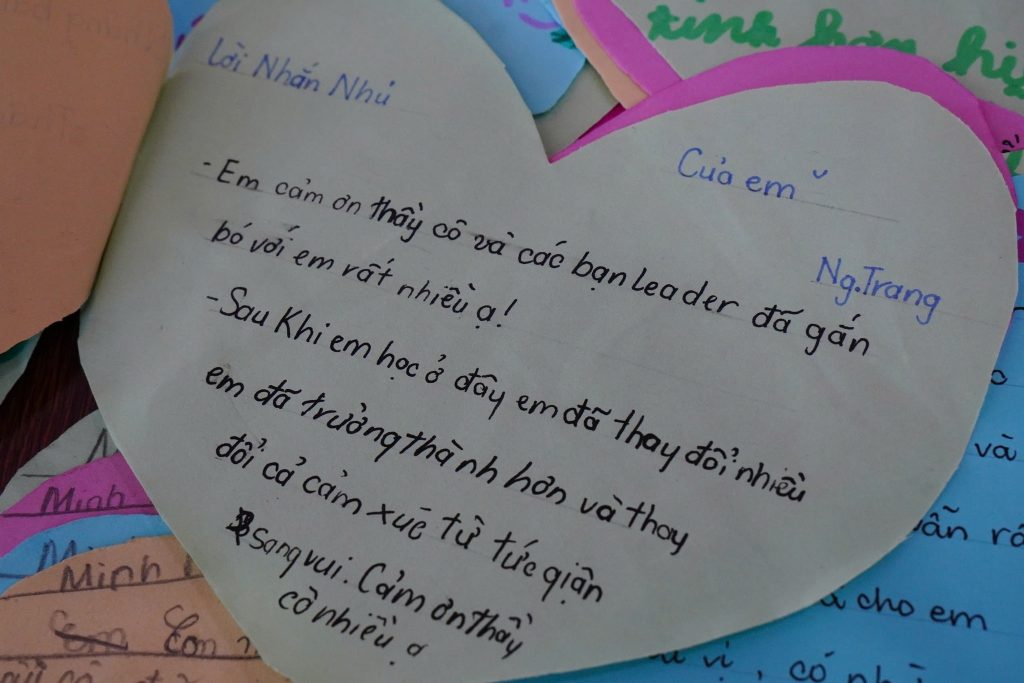 Lời Nhắn Nhủ
Của em
Ng.Trang
- Em cảm ơn thầy cô và các bạn leader đã gắn
bó với em rất nhiều ạ!
- Sau Khi em học ở đây em đã thay đổi nhiều
em đã trưởng thành hơn và thay
đổi cả cảm xúc từ tức giận
sang vui. Cảm ơn thầy
cô nhiều ạ
kinh hơn
và
cho em
vị, có
Minh
Minh
Con